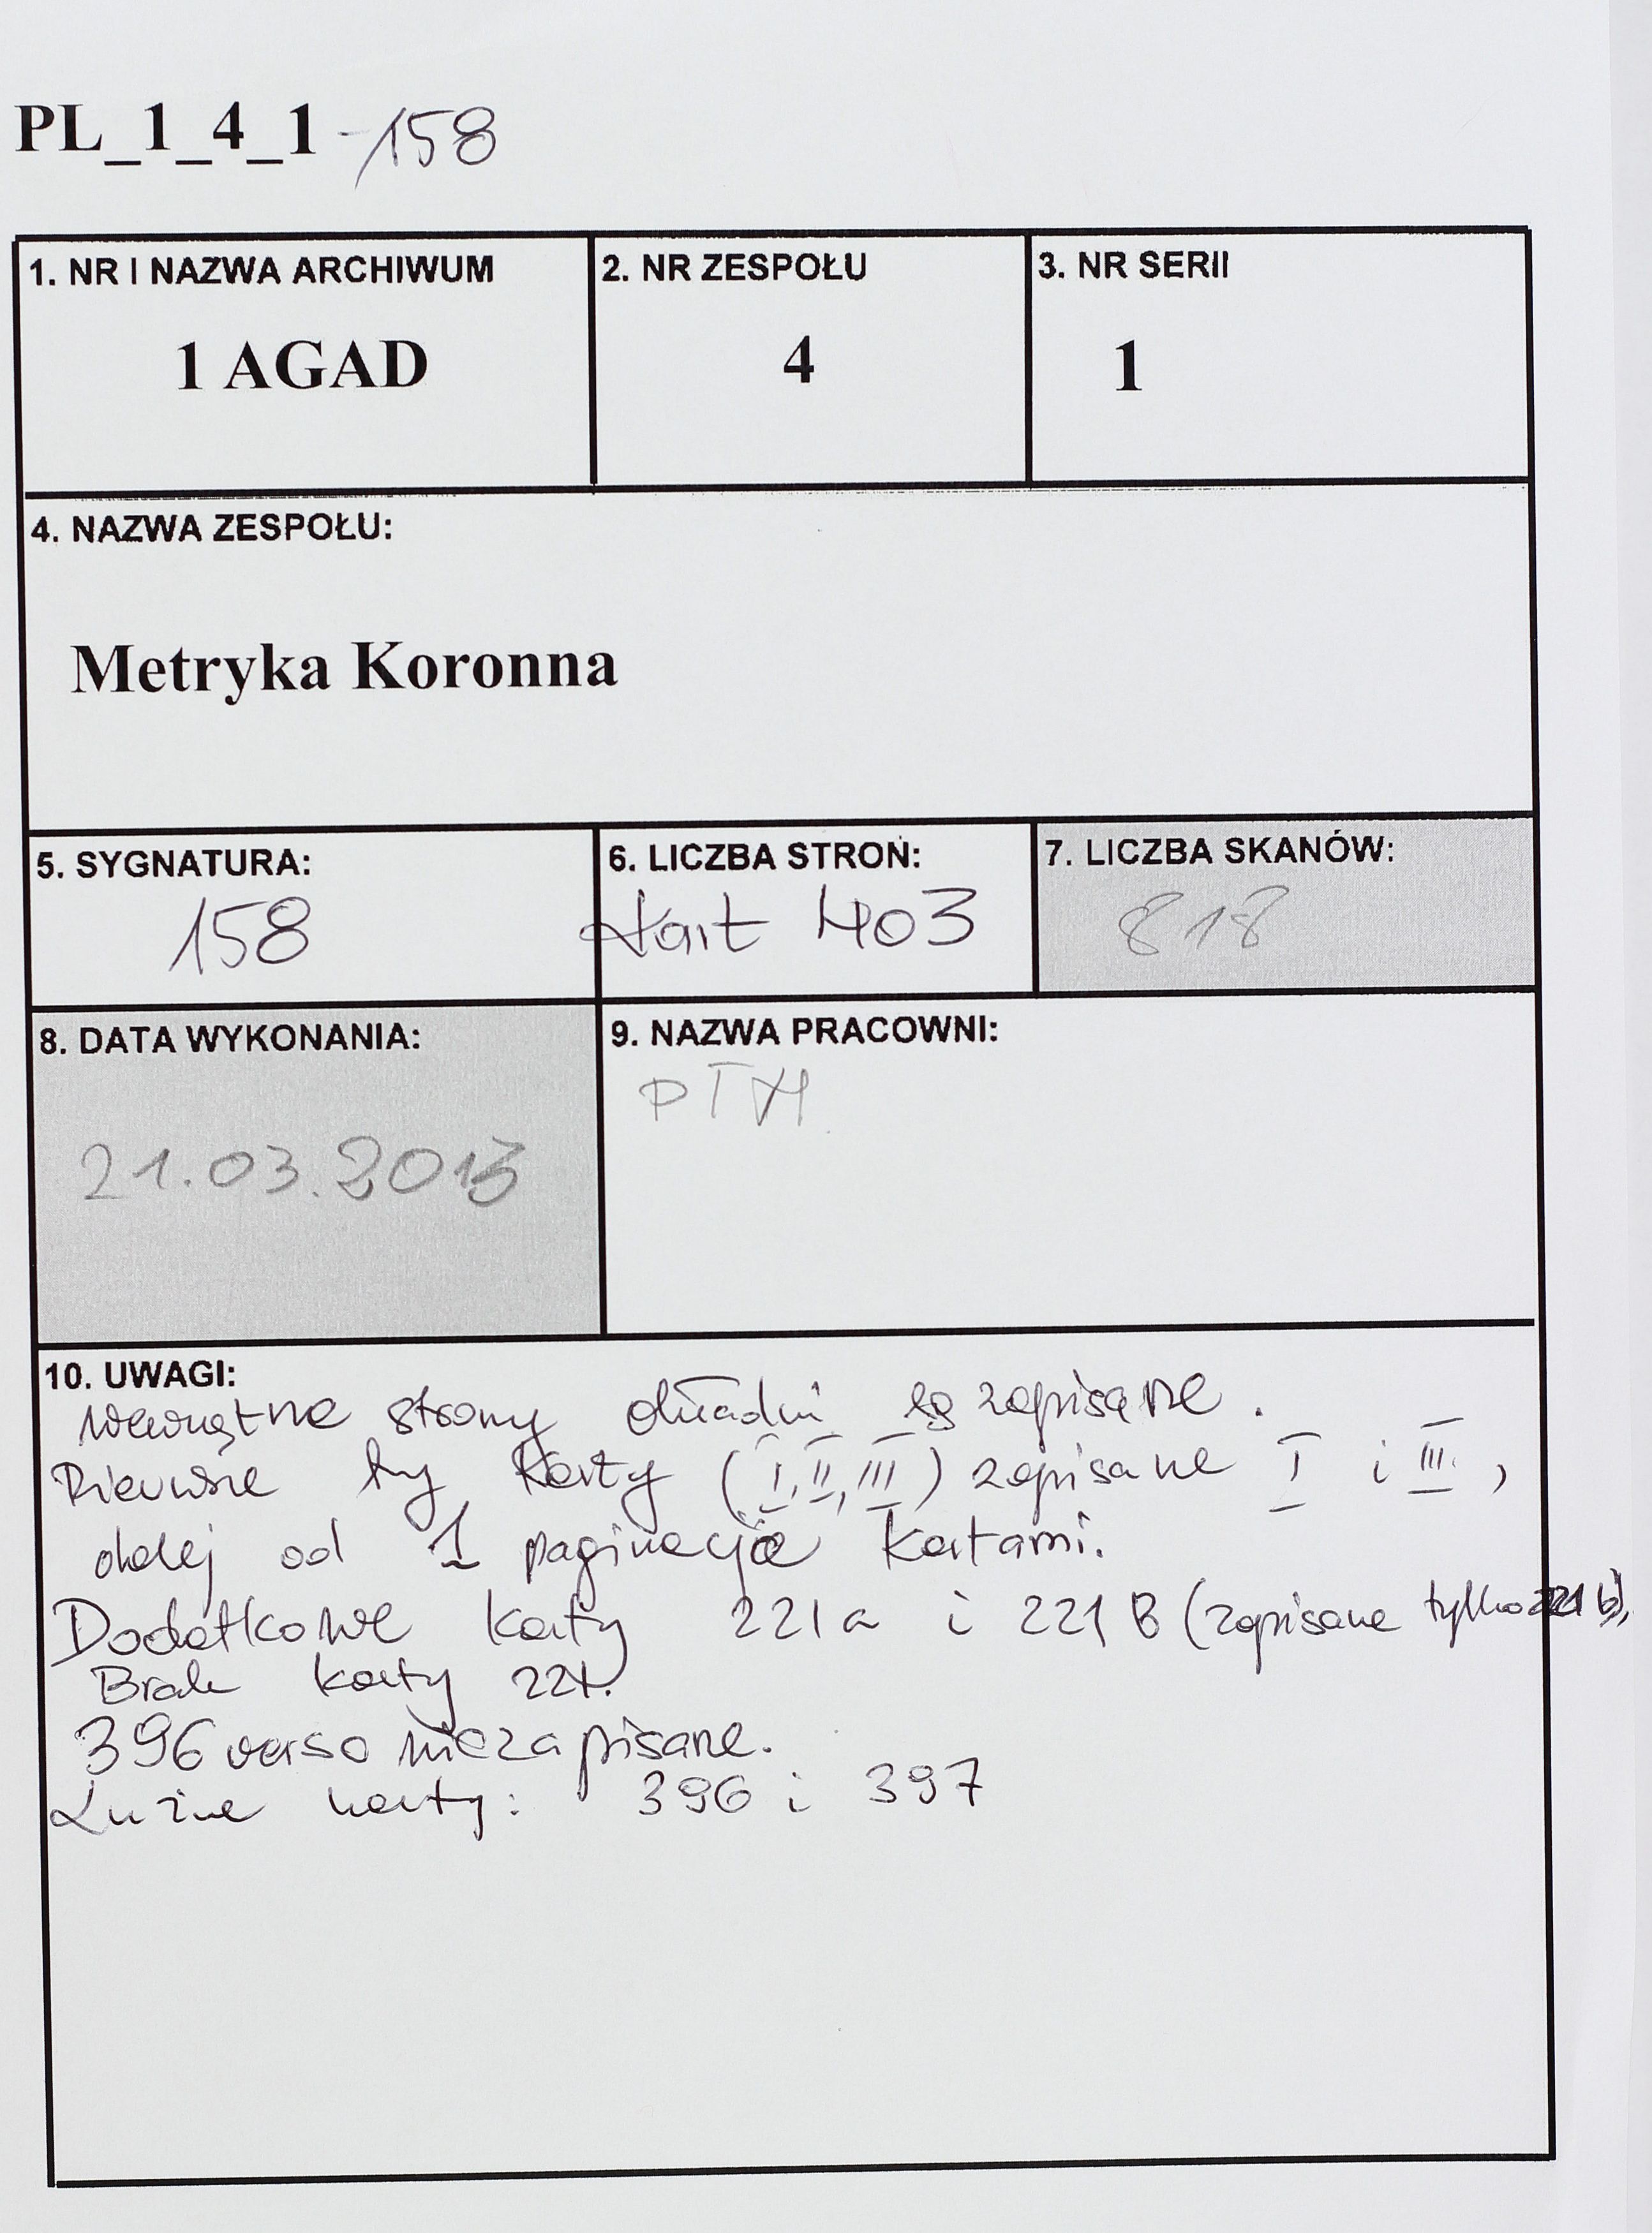 PL_1_4_1-158
1. NR I NAZWA ARCHIWUM
1 AGAD
2. NR ZESPOŁU
4
3. NR SERII
1
4. NAZWA ZESPOŁU:
Metryka Koronna
5. SYGNATURA:
158
6. LICZBA STRON:
kart 403
7. LICZBA SKANÓW:
818
8. DATA WYKONANIA:
21.03.2013
9. NAZWA PRACOWNI:
PTH
10. UWAGI:
Wewnętrzne strony okładki są zapisane.
Pierwsze trzy karty (I, II, III) zapisane I i III,
dalej od 1 paginacja kartami.
Dodatkowe karty 221a i 221B (zapisane tylko 221 b),
Brak karty
396 verso niezapisane.
Luźne karty: 396 i 397